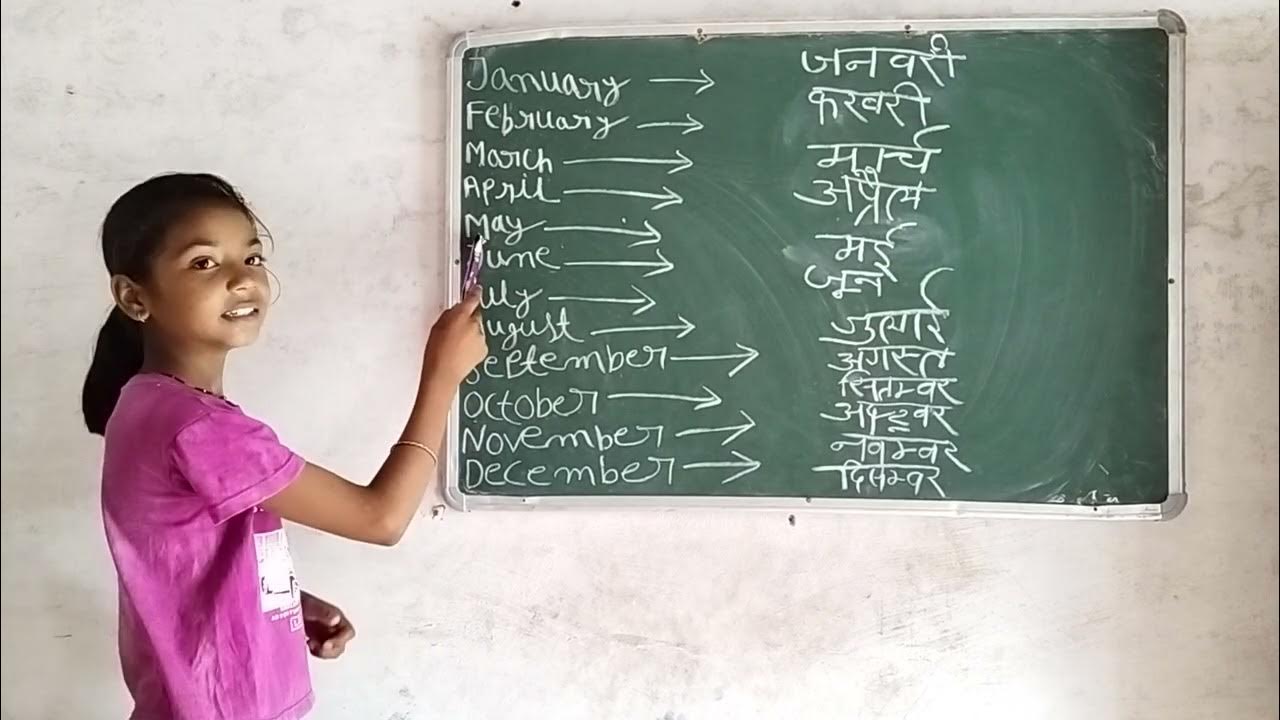 January → जनवरी
February → फरवरी
March → मार्च
April → अप्रैल
May → मई
June → जून
July → जुलाई
August → अगस्त
September → सितम्बर
October → अक्टूबर
November → नवम्बर
December → दिसम्बर